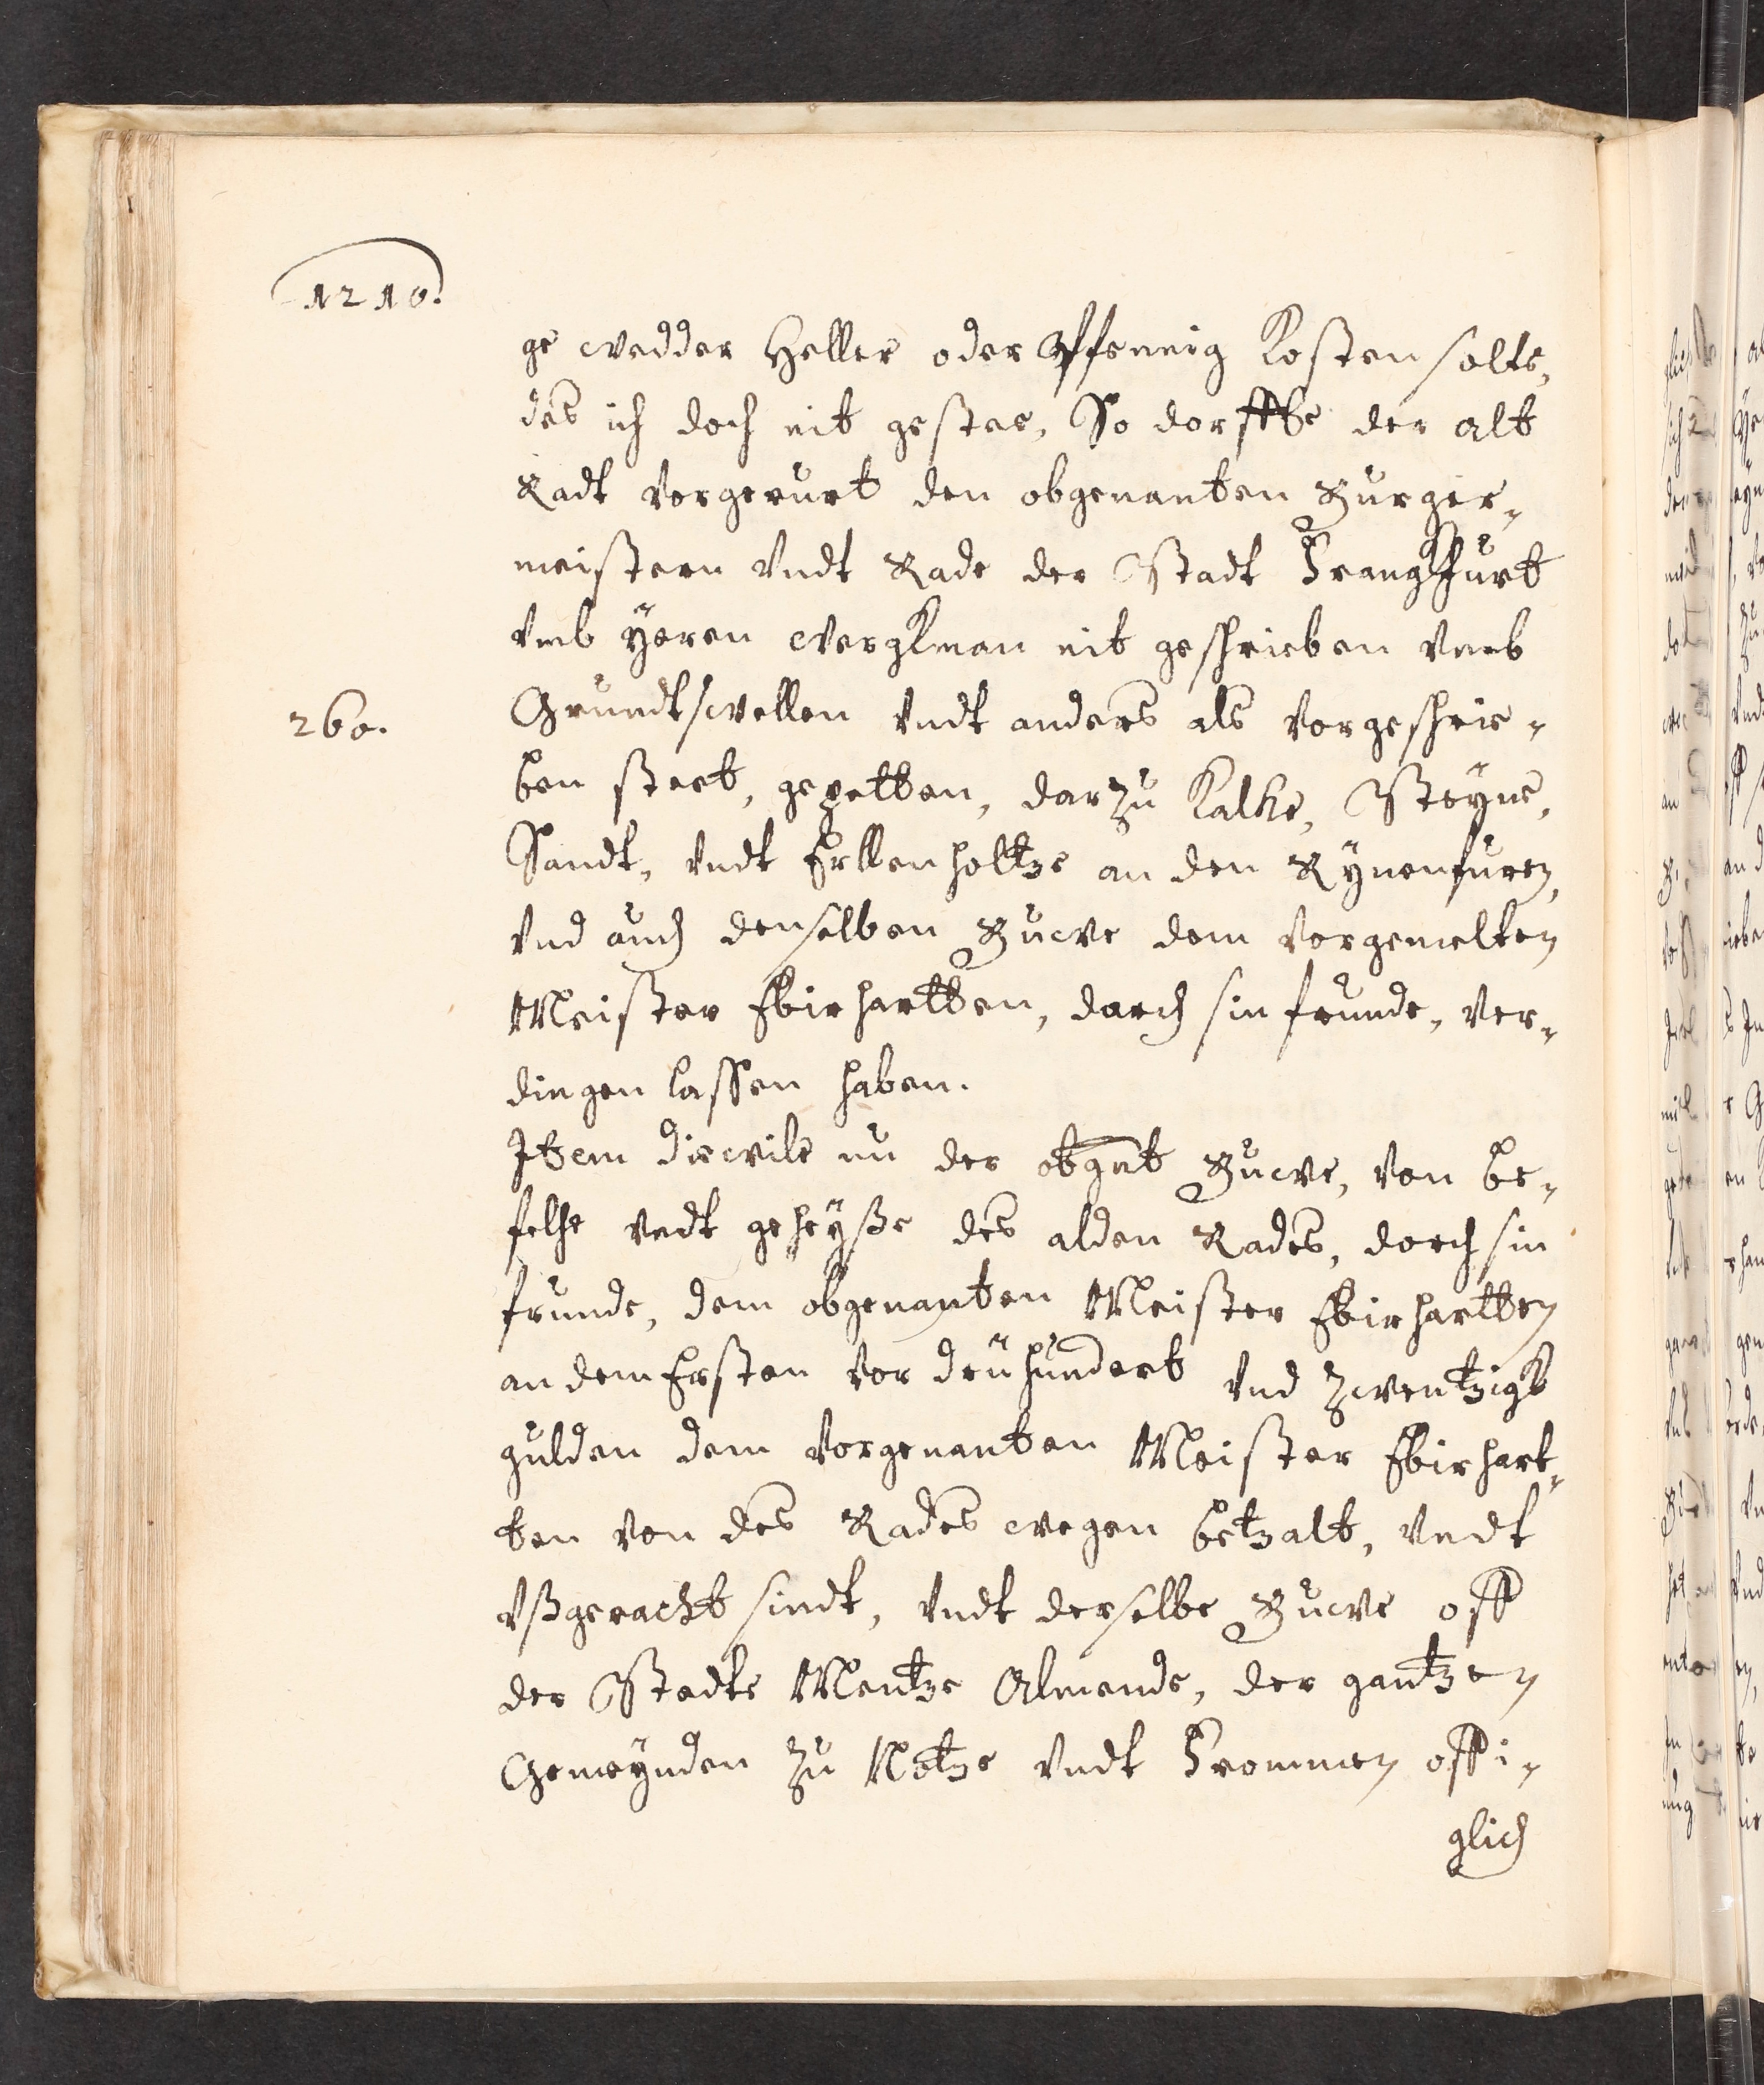 1210.
ge wedder Heller oder Pfennig Kosten solte,
des ich doch nit gestee, So dorffte der alt
Radt vorgerurt den obgenanten Burger-
meistern vndt Rade der Stadt Frangkfurt
vmb yeren wergkman nit geschrieben vmb
260.
Grundtswellen vndt anders als vorgeschrie-
ben steet, gepetten, darzu Kalke, Steyne,
Sandt, vndt Erllenholtze an den Rynenfuren,
vnd auch denselben Buwe dem vorgemelten
Meister Ebirhartten, durch sin frunde, ver-
dingen lassen haben.
Item diewile nu der obgnt Buwe, von be-
felhe vndt geheysse des alden Rades, dorch sin
frunde, dem obgenanten Meister Ebirhartten
an dem Ersten vor druhundert vnd zwentzigk
gulden dem vorgenanten Meister Ebirhart-
ten von des Rades wegen betzalt, vndt
vßgeracht sindt, vndt derselbe Buwe off
der Stadte Mentze Almende, der gantzen
Gemeynden zu Notze vndt Frommen offi-
glich